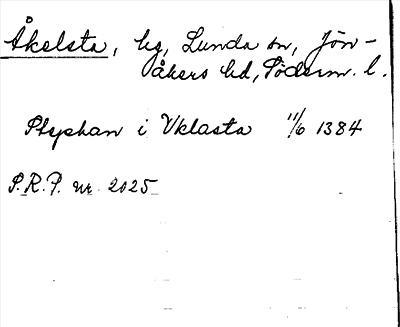 Åkelsta, by, Lunda sn, Jön-
åkers hd, Söderm. l.
Stephan i Vklasta 11/6 1384
S.R.P. nr. 2025